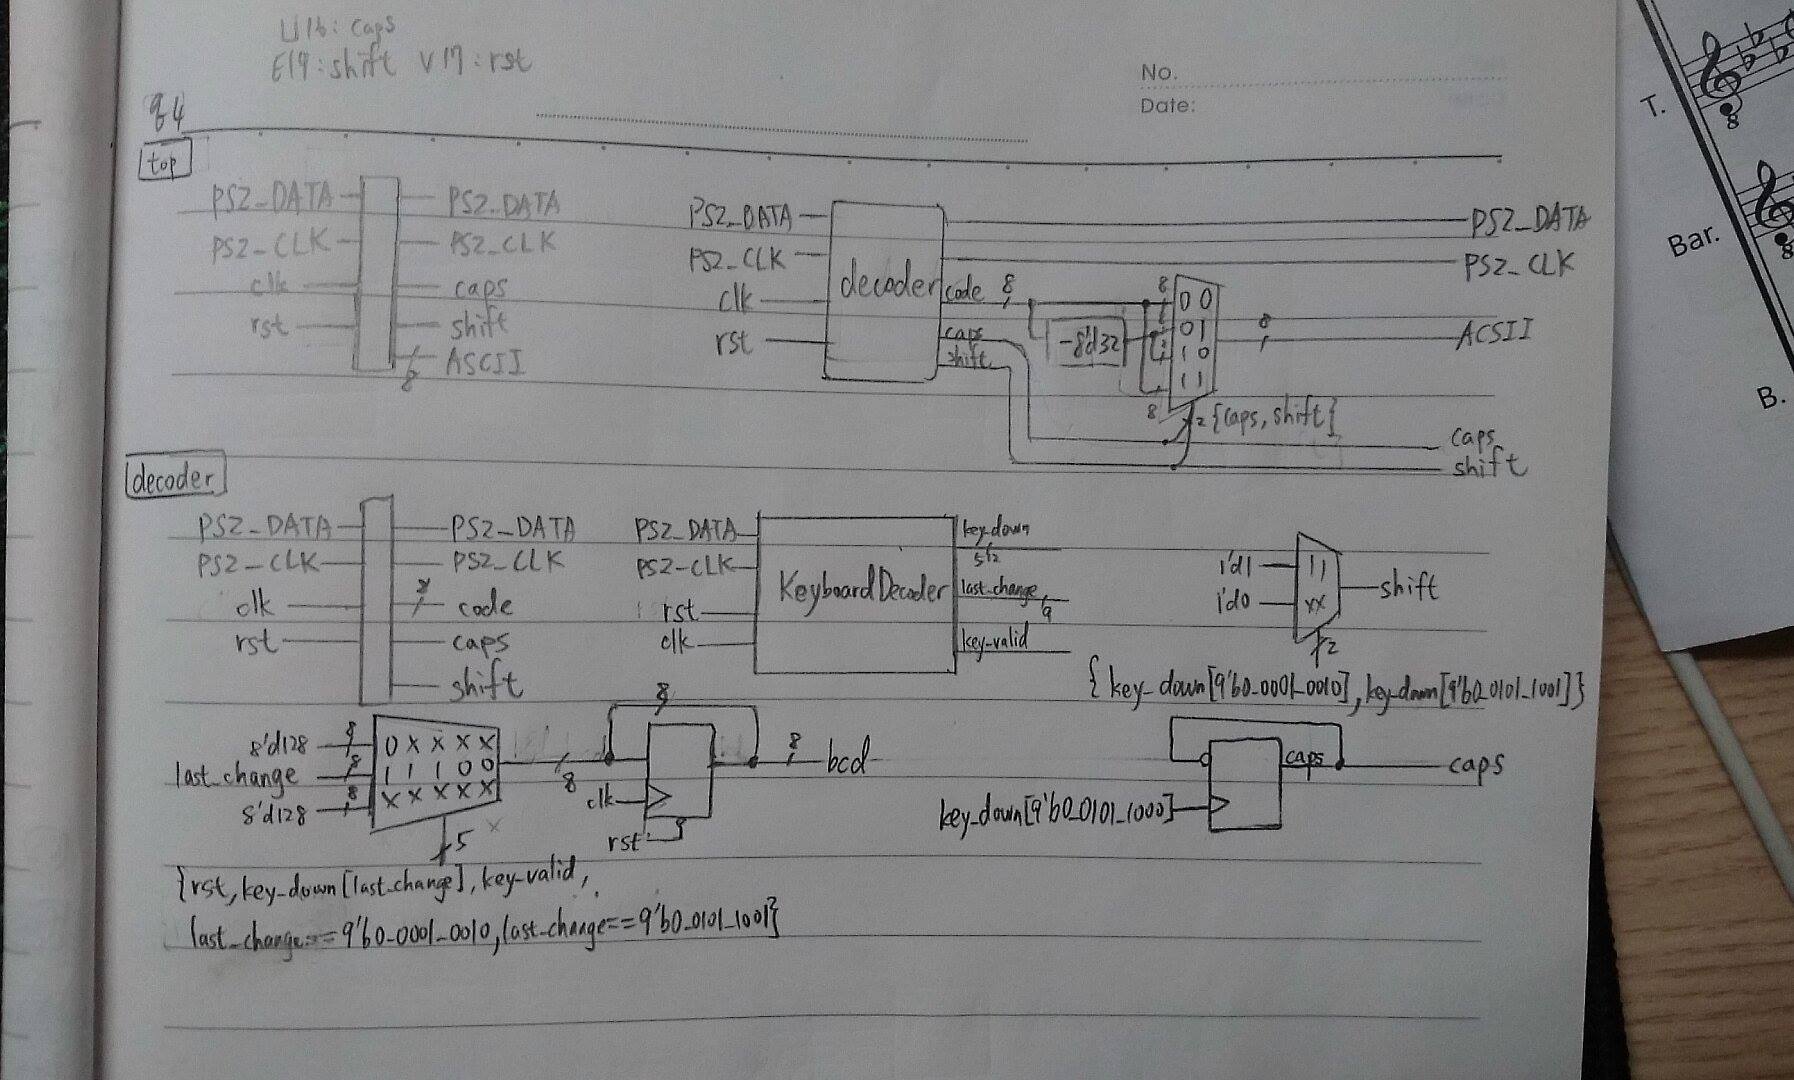 U16: caps
E19: shift V17: rst
No.
Date:
q4
top
PS2_DATA PS2_DATA
PS2_CLK PS2_CLK
clk caps
rst shift
ASCII
8
PS2_DATA PS2_DATA
PS2_CLK PS2_CLK
clk decoder code 8 8 00
rst caps -8'd32 01 8 ACSII
shift 10
11
8 2 {caps, shift}
caps
shift
decoder
PS2_DATA PS2_DATA
PS2_CLK PS2_CLK
clk code
rst caps
shift
PS2_DATA key_down
512
PS2-CLK KeyboardDecoder last_change
9
rst
clk key-valid
1'd1 11 shift
1'd0 xx
2
{key_down[9'b0_0001_0010], key_down[9'b0_0101_1001]}
8'd128 8 0 X X X X
last_change 8 1 1 1 0 0
8'd128 8 X X X X X
5 x
8
8
clk
rst
8 bcd
{rst, key_down[last_change], key-valid,
last_change==9'b0_0001_0010, last_change==9'b0_0101_1001}
caps caps
key_down[9'b0_0101_1000]
T.
Bar.
B.
8
8